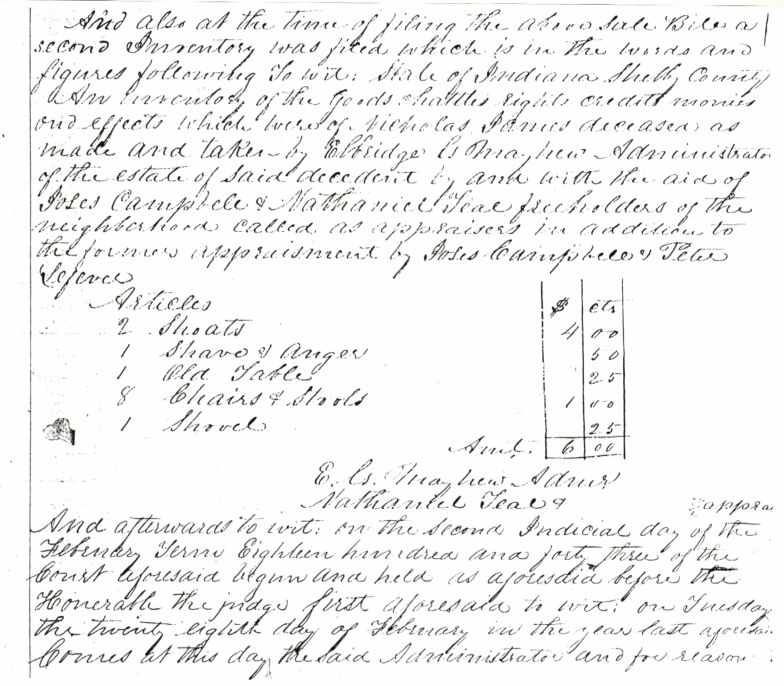 And also at the time of filing the above Sale Bill a
second Inventory was filed which is in the words and
figures following To wit: State of Indiana Shelby County
An inventory of the Goods chattles rights credits monies
and effects which were of Nicholas James deceased as
made and taken by Elbridge G Mayhew Administrator
of the estate of said decedent by and with the aid of
Joses Campbell & Nathaniel Teal freeholders of the
neighborhood called as appraisers in addition to
the former appraisment by Joses Campbell & Peter
Lefever
Articles $ cts
2 Shoats 4 00
1 Shave & Auger 50
1 Old Table 25
8 Chairs & Stools 1 00
1 Shovel 25
Amt. 6 00
E. G. Mayhew Admr
Nathaniel Teal & appra
And afterwards to wit: on the second Judicial day of the
February Term Eighteen hundred and forty three of the
Court aforesaid begun and held as aforesdid before the
Honerable the judge first aforesaid to wit: on Tuesday
the twenty eighth day of February in the year last aforesai
Comes at this day the said Administrator and for reason